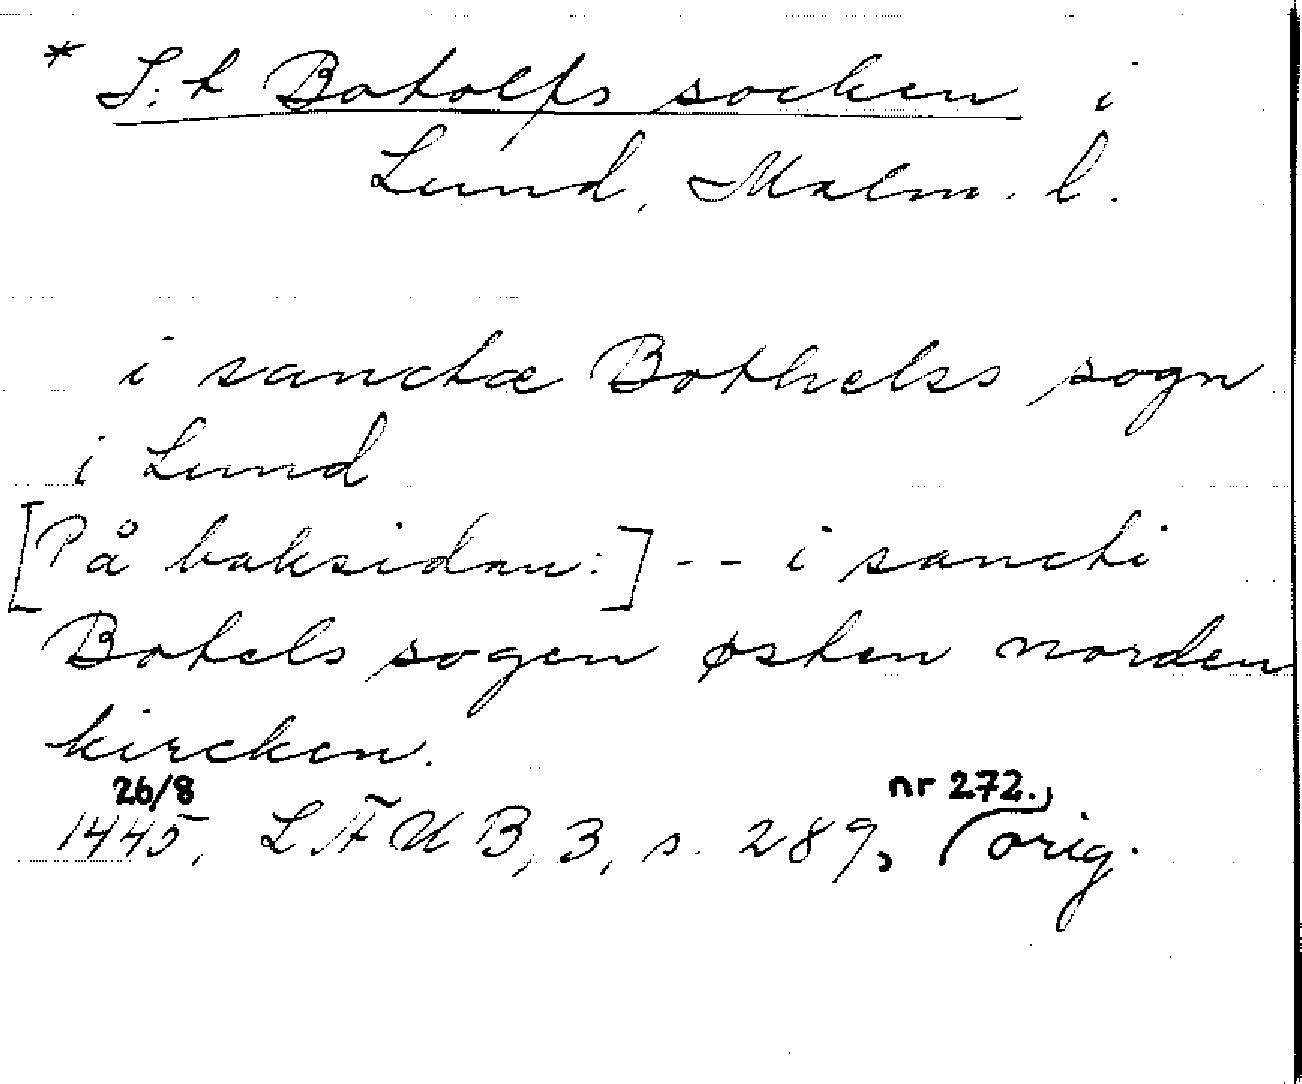 * S:t Botolfs socken i
Lund, Malm. l.
i sanctæ Bothelss sogn
i Lund
[På baksidan:] -- i sancti
Botels sogen østen norden
kircken.
26/8 nr 272.,
1445, LÄUB, 3, s. 289, orig.